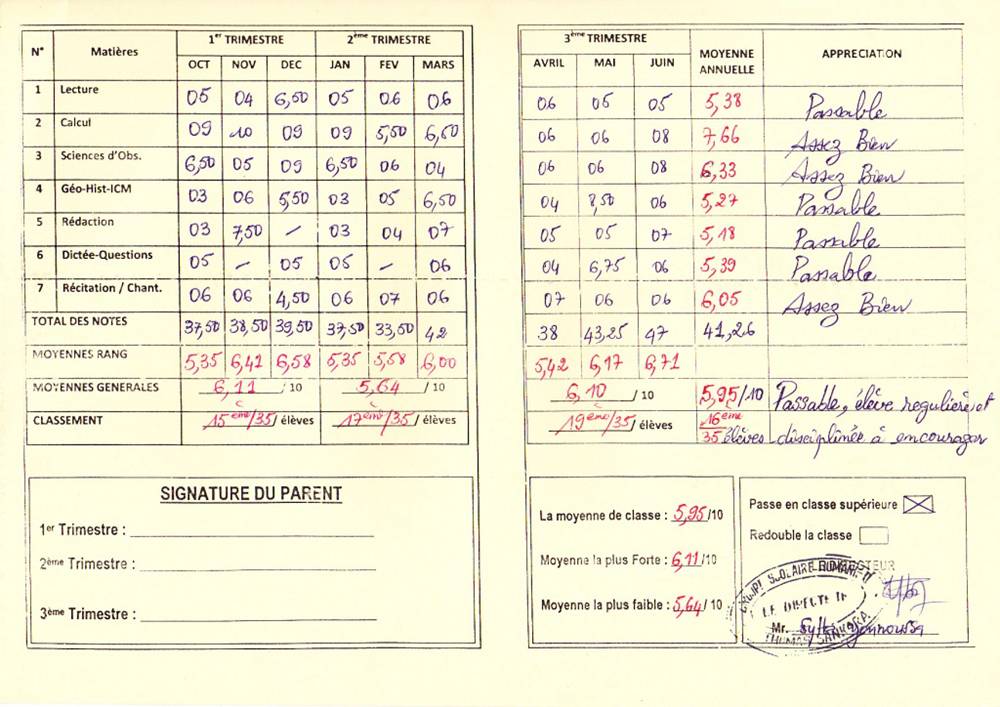 N° Matières 1er TRIMESTRE 2ème TRIMESTRE
OCT NOV DEC JAN FEV MARS
1 Lecture 05 04 6,50 05 06 06
2 Calcul 09 10 09 09 5,50 6,50
3 Sciences d'Obs. 6,50 05 09 6,50 06 04
4 Géo-Hist-ICM 03 06 5,50 03 05 6,50
5 Rédaction 03 7,50 – 03 04 07
6 Dictée-Questions 05 – 05 05 – 06
7 Récitation / Chant. 06 06 4,50 06 07 06
TOTAL DES NOTES 37,50 38,50 39,50 37,50 33,50 42
MOYENNES RANG 5,35 6,41 6,58 5,35 5,58 6,00
MOYENNES GENERALES 6,11 / 10 5,64 / 10
CLASSEMENT 15ème/35/ élèves 17ème/35/ élèves
3ème TRIMESTRE MOYENNE ANNUELLE APPRECIATION
AVRIL MAI JUIN
06 05 05 5,38 Passable
06 06 08 7,66 Assez Bien
06 06 08 6,33 Assez Bien
04 8,50 06 5,27 Passable
05 05 07 5,18 Passable
04 6,75 06 5,39 Passable
07 06 06 6,05 Assez Bien
38 43,25 47 41,26
5,42 6,17 6,71
6,10 / 10 5,95/10 Passable, élève regulière et
19ème/35/ élèves 16ème 35 élèves disciplinée à encourager
SIGNATURE DU PARENT
1er Trimestre :
2ème Trimestre :
3ème Trimestre :
La moyenne de classe : 5,95/10
Moyenne la plus Forte : 6,11/10
Moyenne la plus faible : 5,64/ 10
Passe en classe supérieure
Redouble la classe
SCOLAIRE
THOMAS SANKARA
Mr.